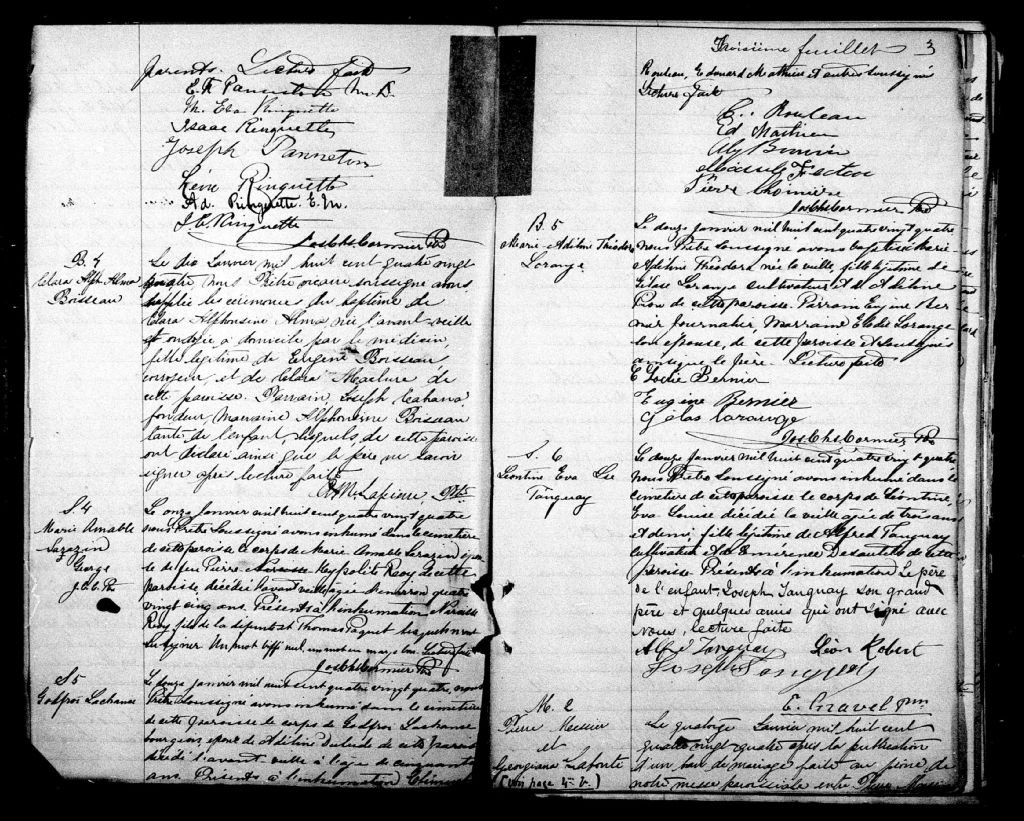 parents. Lecture faite
E. F. Panneton M.D.
M. Eva Ringuette
Isaac Ringuette
Joseph Panneton
Ringuette
Ad. Ringuette E. M.
J. C. Ringuette
Jos Chs Cormier Ptr
B. 4
Clara Alph. Alma
Boisseau
Le dix Janvier mil huit cent quatre vingt
quatre, Nous Prêtre vicaire soussigné avons
suppléé les cérémonies du baptême de
Clara Alphonsine Alma née l'avant-veille
et ondoyée à domicile par le médecin,
fille légitime de Eugène Boisseau
corroyeur, et de Clara Maclure de
cette paroisse. Parrain, Joseph Cahana
fondeur Marraine Alphonsine Boisseau
tante de l'enfant lesquels de cette paroisse
ont déclaré ainsi que le père ne savoir
signer après lecture faite.
Ptr
S. 4
Marie Amable
Sarazin
J. C. C. Ptr
Le onze Janvier mil huit cent quatre vingt quatre
nous Prêtre soussigné avons inhumé dans le cimetière
de cette paroisse le corps de Marie Amable Sarazin épouse
de feu Pierre Hypolite Roy de cette
paroisse décédée l'avant veille agée de quatre
vingt cinq ans. Présents à l'inhumation Narcisse
Roy fils de la défunte et Thomas Paquet lesquels n'ont
su signer Un mot biffé nul, un mot en marge bon. Lecture faite
Jos Chs Cormier Ptr
S 5
Godfroi Lachance
Le douze janvier mil huit cent quatre vingt quatre, nous
Prêtre soussigné avons inhumé dans le cimetière
de cette paroisse le corps de Godfroi Lachance
bourgeois époux de Adéline de cette paroisse
décédé l'avant veille à l'age de cinquante
ans. Présents à l'inhumation
Troisième feuillet 3
Rouleau, Edouard Mathieu et autres soussignés
Lecture faite
E. Rouleau
Ed Mathieu
Pierre
Jos Chs Cormier Ptr
B. 5
Marie-Adéline Théodora
Lorange
Le douze janvier mil huit cent quatre vingt quatre
nous Prêtre soussigné avons baptisé Marie
Adéline Théodora née la veille, fille légitime de
Gélase Lorange cultivateur et d'Adéline
de cette paroisse. Parrain Eugène Ber
nier journalier, Marraine Elodie Lorange
son épouse, de cette paroisse et soussignés
ainsi que le père. Lecture faite
Elodie Bernier
Eugène Bernier
Gélas Lorange
Jos Chs Cormier Ptr
S. 6
Léontine Eva Lse
Tanguay
Le douze janvier mil huit cent quatre vingt quatre
nous Prêtre soussigné avons inhumé dans le
cimetière de cette paroisse le corps de Léontine,
Eva Louise décédée la veille agée de trois ans
et demi, fille légitime de Alfred Tanguay
cultivateur et de Emérence Desautels de cette
paroisse Présents à l'inhumation Le père
de l'enfant, Joseph Tanguay son grand
père et quelques amis qui ont signé avec
nous, lecture faite
Alfd Tanguay Léon Robert
Joseph Tanguay
E. Gravel
M. 2
Pierre Messier
et
Georgiana Laforte
(Voir page 4 b.)
Le quatorze Janvier mil huit cent
quatre vingt-quatre après la publication
d'un ban de mariage faite au prône de
notre messe paroissiale entre Pierre Messier